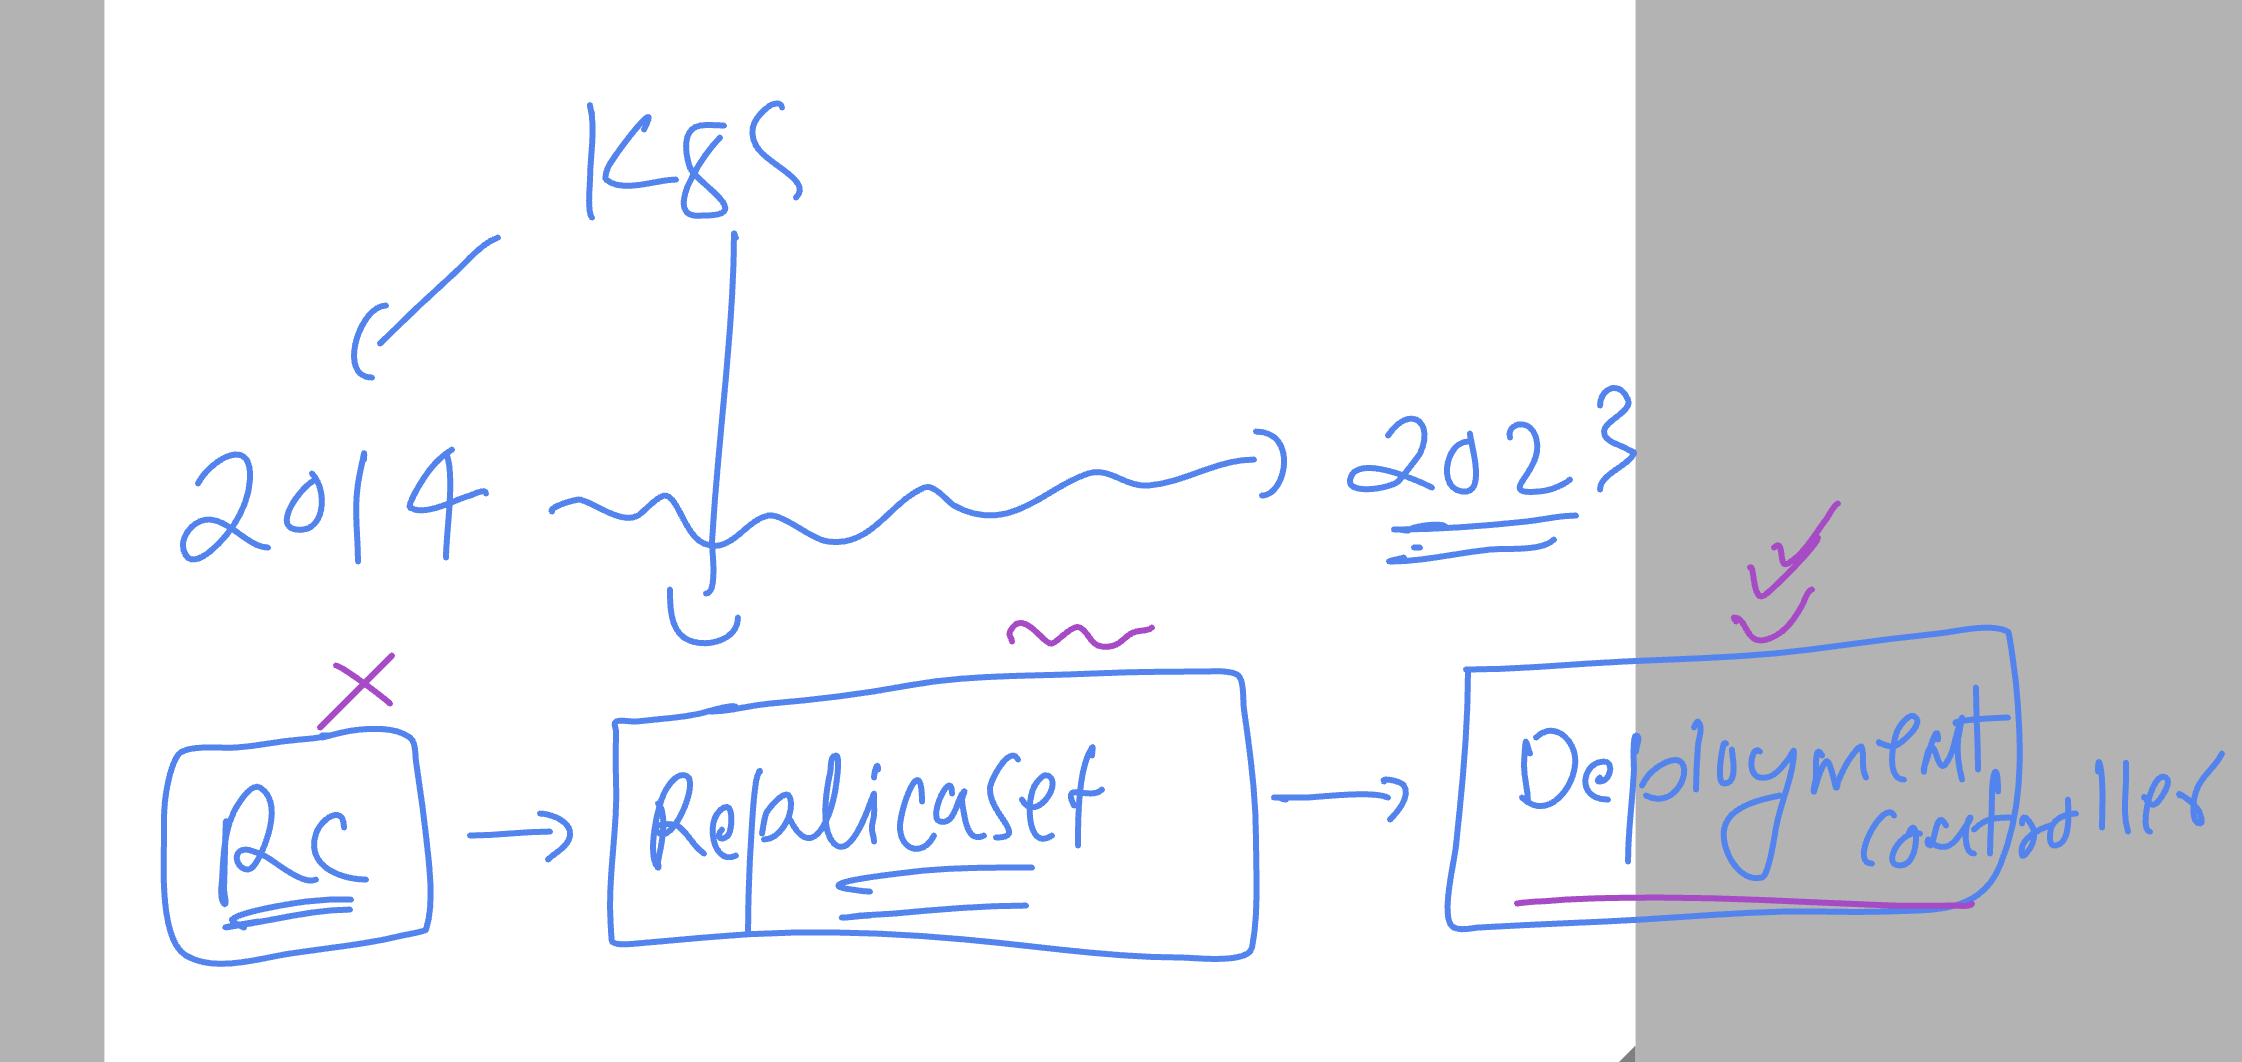 K8S
2014
2023
RC
Replicaset
Deployment
Controller